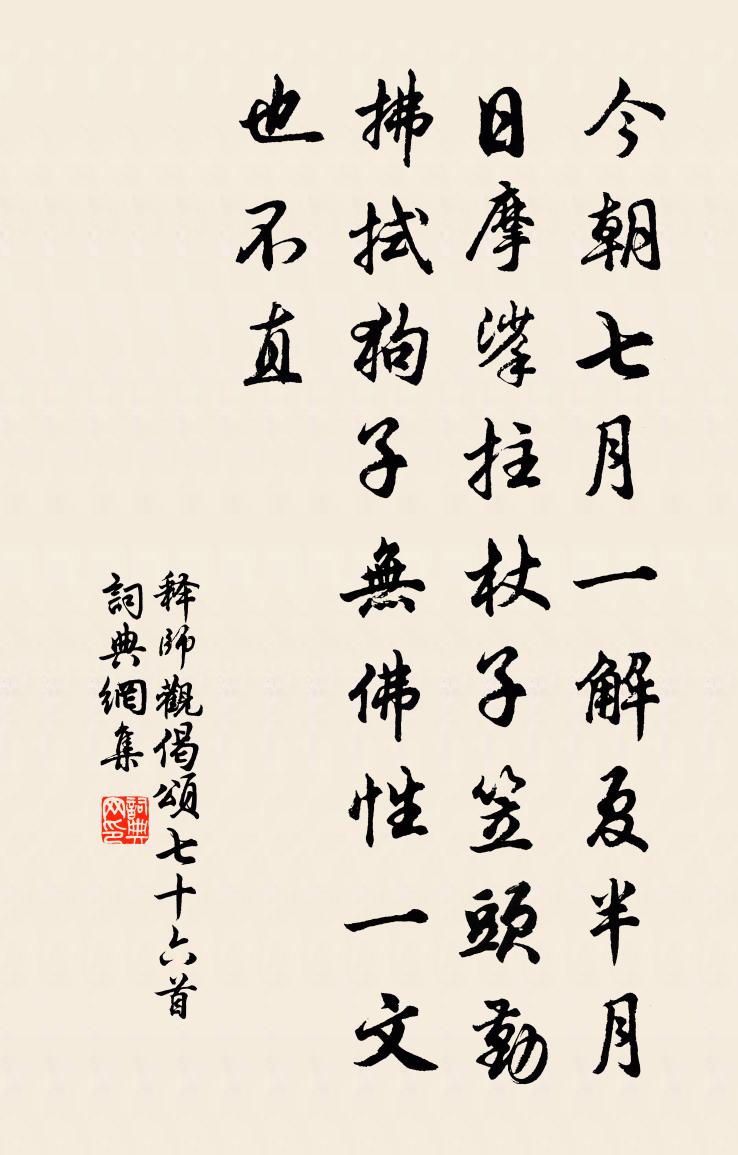 今朝七月一解夏半月
日摩挲拄杖子笠頭勤
拂拭狗子無佛性一文
也不直
释師觀偈頌七十六首
詞典網集
詞典网印